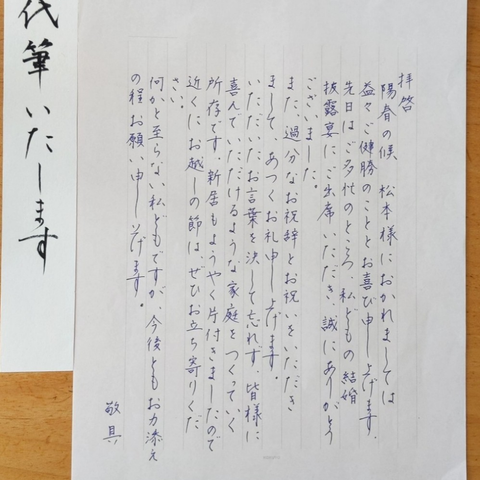 拝啓
陽春の候、松本様におかれましては
益々ご健勝のこととお喜び申し上げます。
先日はご多忙のところ、私どもの結婚
披露宴にご出席いただき、誠にありがとう
ございました。
また、過分なお祝辞とお祝いをいただき
まして、あつくお礼申し上げます。
いただいたお言葉を決して忘れず、皆様に
喜んでいただけるような家庭をつくっていく
所存です。新居もようやく片付きましたので
近くにお越しの節は、ぜひお立ち寄りくだ
さい。
何かと至らない私どもですが、今後ともお力添え
の程お願い申し上げます。
敬具
代筆いたします